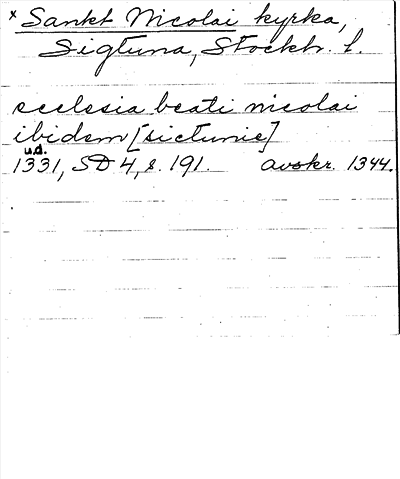 x Sankt Nicolai kyrka,
Sigtuna, Stockh. l.
ecclesia beati nicolai
ibidem [sictunie]
u.d.
1331, SD 4, s. 191. avskr. 1344.